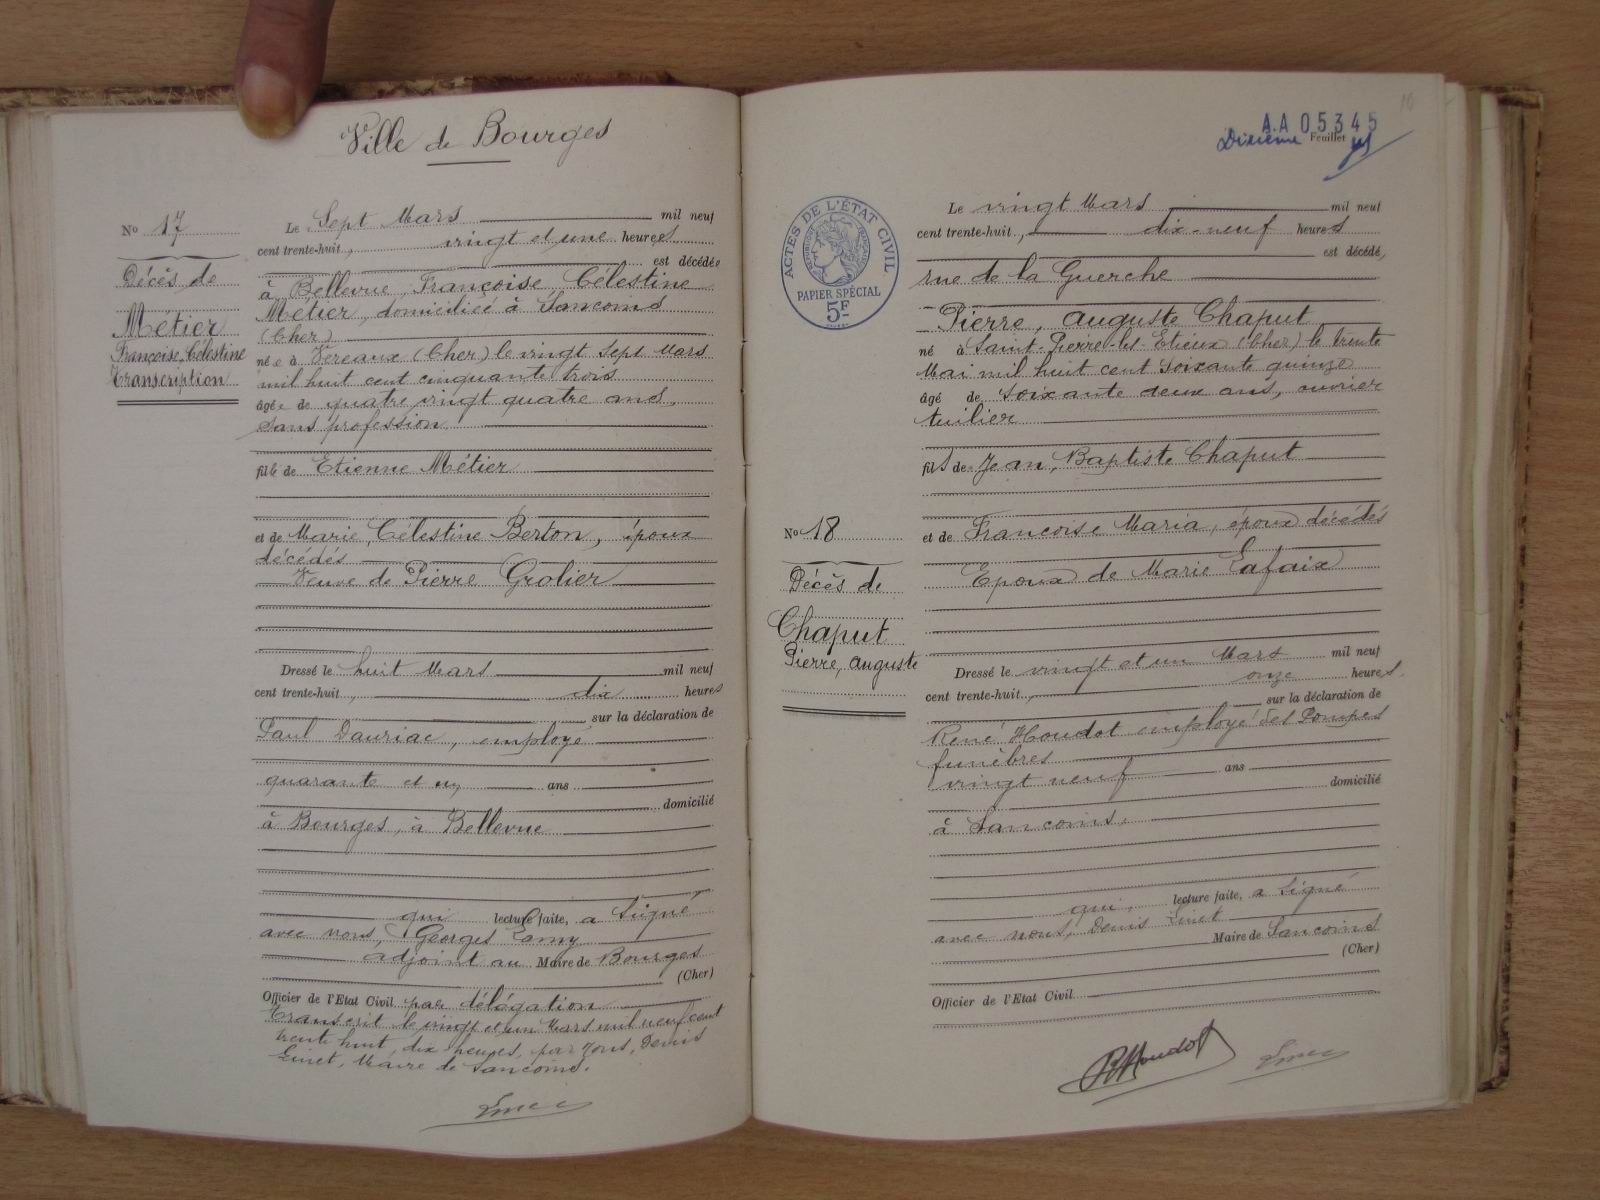 Ville de Bourges
No 17
Décès de
Métier
Françoise, Célestine
Transcription
Le Sept Mars mil neuf
cent trente-huit, vingt et une heures
est décédée
à Bellevue, Françoise, Célestine
Métier, domiciliée à Sancoins
(Cher)
née à Vereaux (Cher) le vingt sept Mars
mil huit cent cinquante trois
âgée de quatre vingt quatre ans,
sans profession
fille de Etienne Métier
et de Marie, Célestine Berton, époux
décédés
Veuve de Pierre Grolier
Dressé le huit Mars mil neuf
cent trente-huit, dix heures
sur la déclaration de
Paul Dauriac, employé
quarante et un ans
domicilié
à Bourges, à Bellevue
qui lecture faite, a signé
avec nous, Georges Lamy
adjoint au Maire de Bourges
(Cher)
Officier de l'Etat Civil par délégation
Transcrit le vingt et un Mars mil neuf cent
trente huit, dix heures, par nous, Denis
Maire de Sancoins.
10
A.A 05345
Dixième Feuillet
ACTES DE L'ÉTAT CIVIL
PAPIER SPÉCIAL
5F
No 18
Décès de
Chaput
Pierre, Auguste
Le vingt Mars mil neuf
cent trente-huit, dix-neuf heures
est décédé,
rue de la Guerche
Pierre, Auguste Chaput
né à Saint-Pierre-les Etieux (Cher) le trente
Mai mil huit cent soixante quinze
âgé de soixante deux ans, ouvrier
tuilier
fils de Jean, Baptiste Chaput
et de Francoise Maria, époux décédés
Epoux de Marie Lafaix
Dressé le vingt et un Mars mil neuf
cent trente-huit, onze heures
sur la déclaration de
René Houdot employé des Pompes
funèbres
vingt neuf ans
domicilié
à Sancoins,
qui, lecture faite, a signé
avec nous, Denis
Maire de Sancoins
(Cher)
Officier de l'Etat Civil
RHoudot